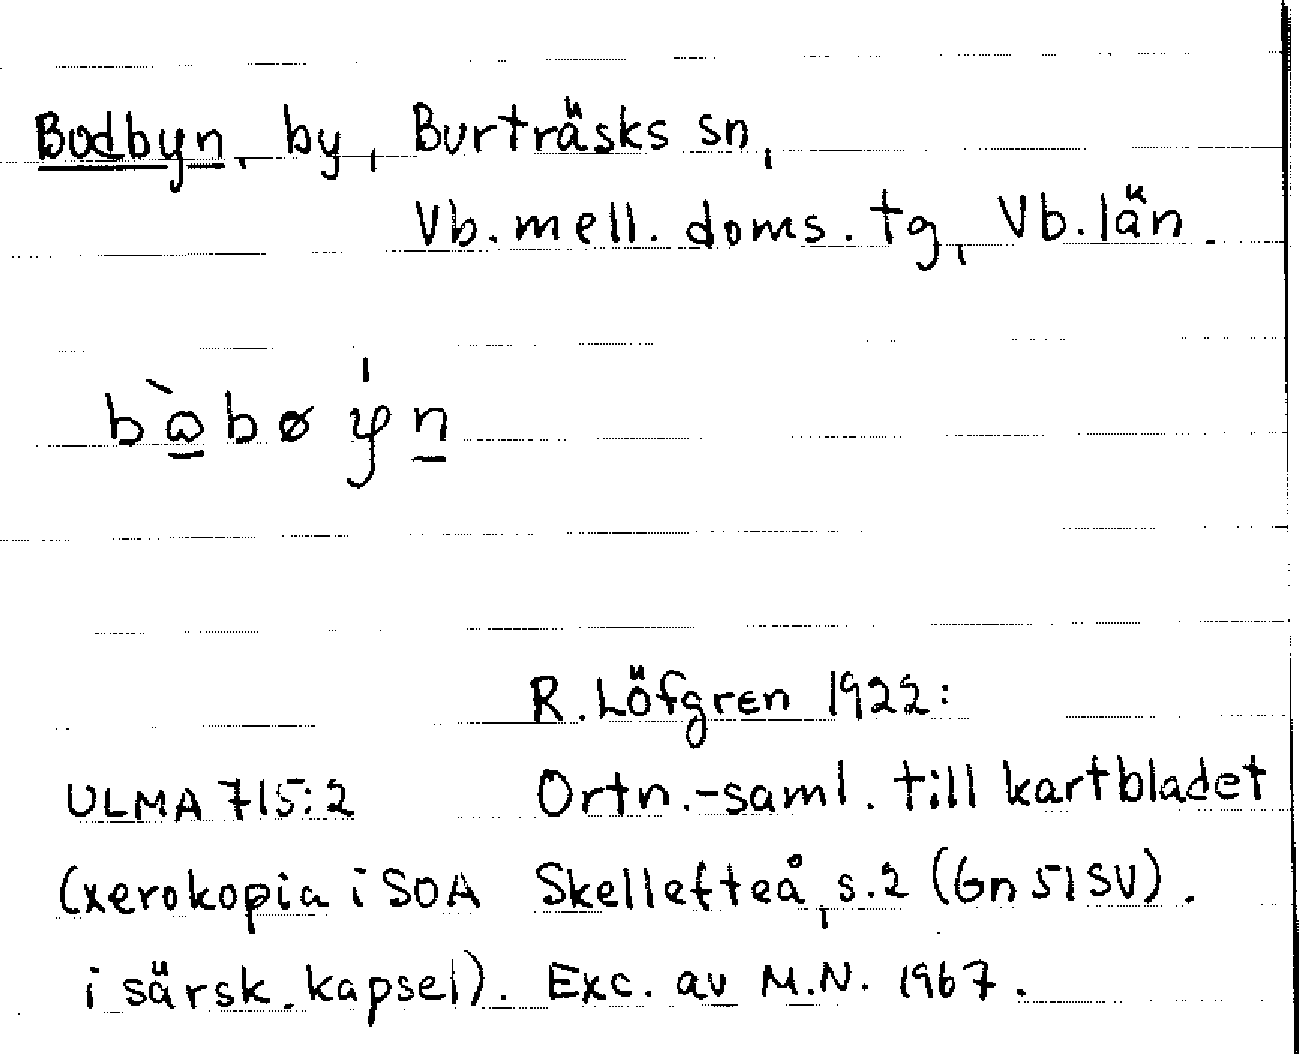 Bodbyn, by, Burträsks sn,
Vb. mell. doms. tg, Vb. län.
R. Löfgren 1922:
ULMA 715:2 Ortn.-saml. till kartbladet
(xerokopia i SOA Skellefteå, s.2 (Gn 51 SV).
i särsk. kapsel). Exc. av M.N. 1967.